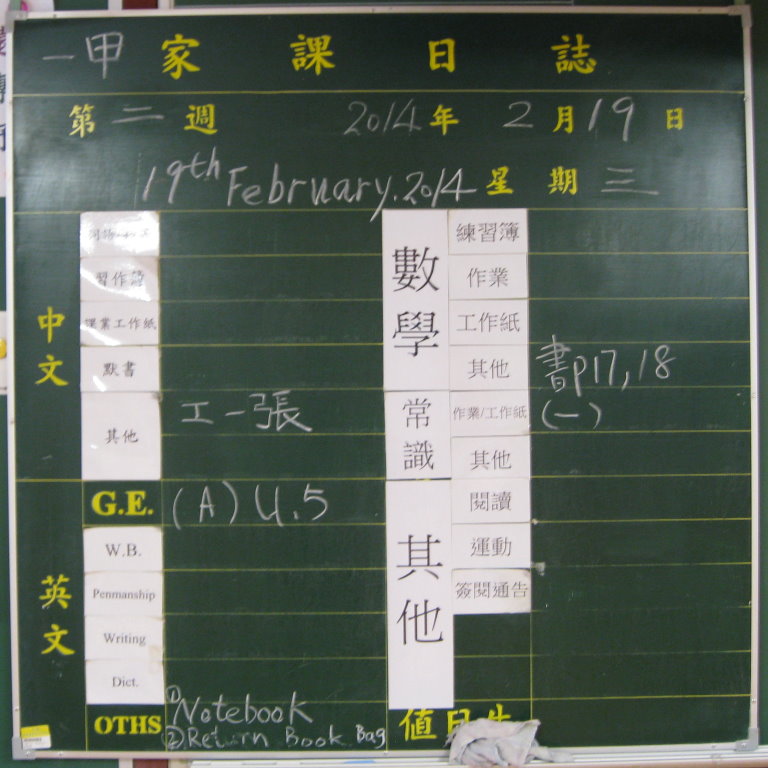 一甲 家課日誌
第二週 2014年2月19日
19th February.2014 星期三
中文
習作簿
課業工作紙
默書
其他 工一張
英文
G.E. (A) U.5
W.B.
Penmanship
Writing
Dict.
OTHS ①Notebook
②Return Book Bag
數學
練習簿
作業
工作紙
其他 書p17,18
常識
作業/工作紙 (一)
其他
其他
閱讀
運動
簽閱通告
值日生